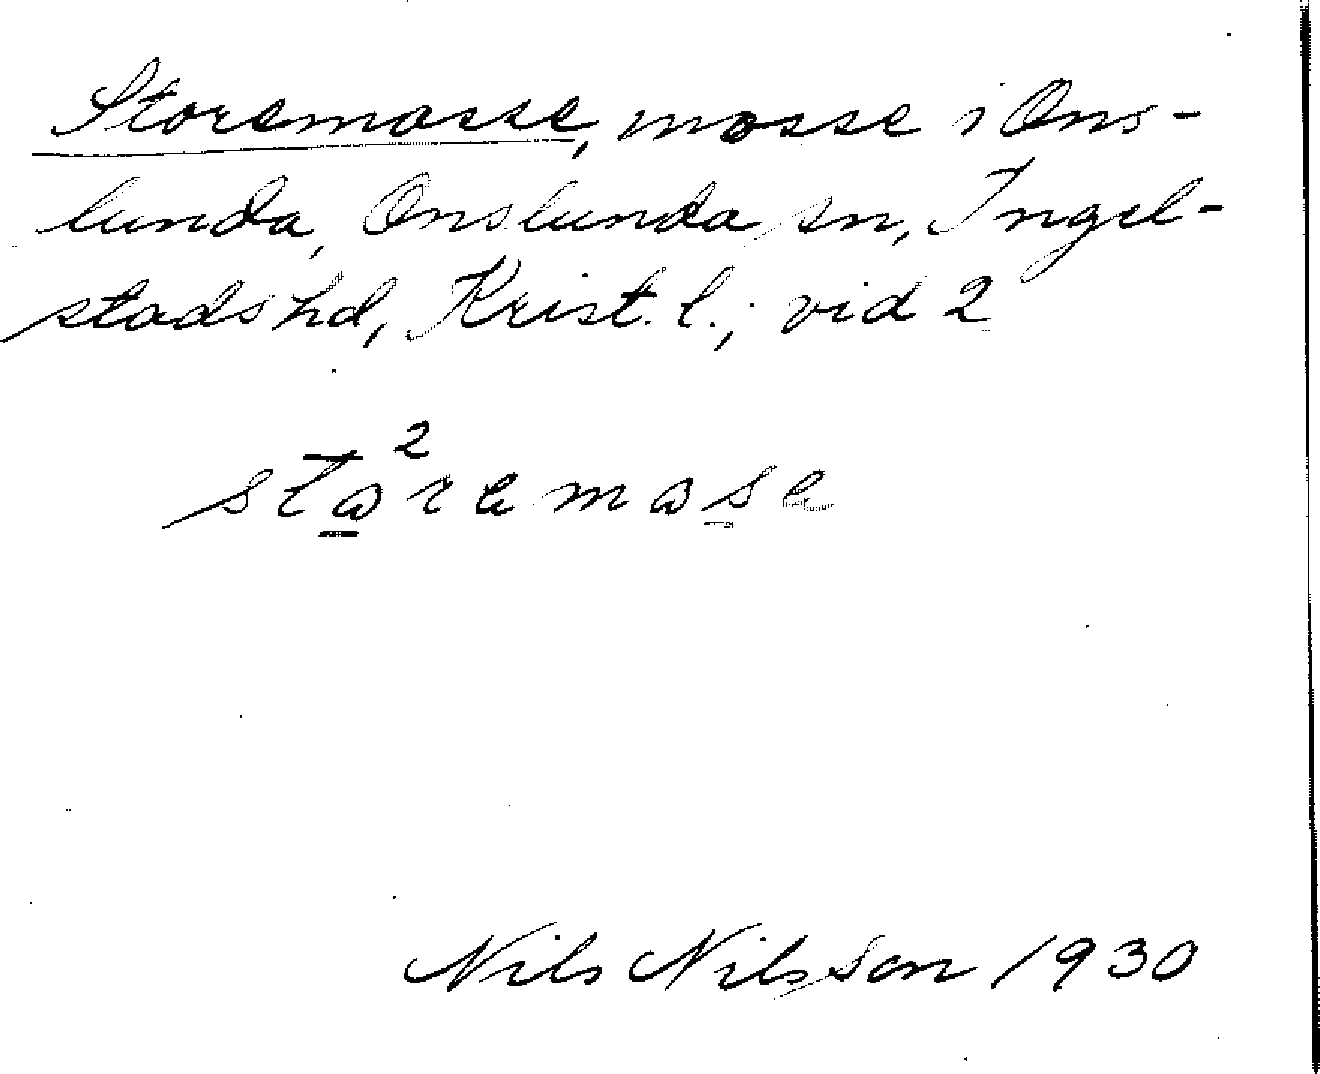 Storemosse, mosse i Ons-
lunda, Onslunda sn, Ingel-
stads hd, Krist. l.; vid 2
stω²remωse
Nils Nilsson 1930